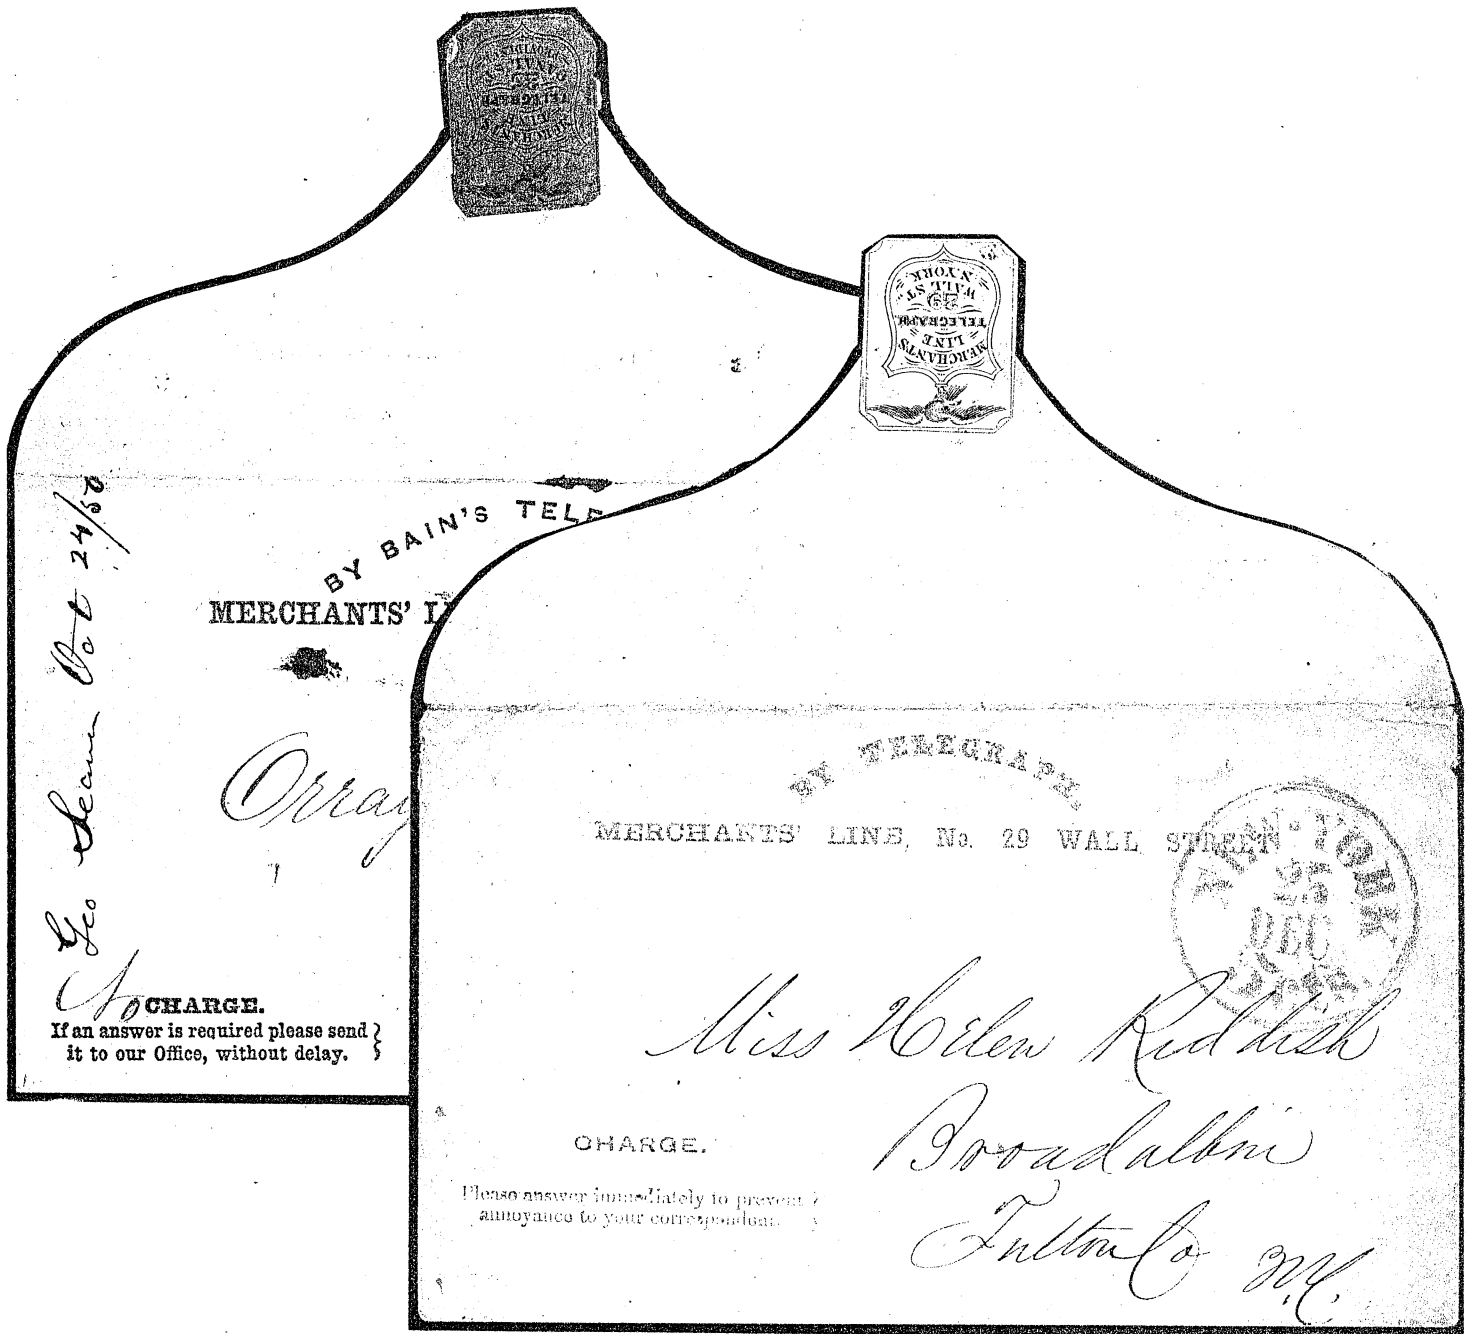 MERCHANT'S
LINE
TELEGRAPH
CANAL ST.
PROVIDENCE
MERCHANT'S
LINE
TELEGRAPH.
29
WALL ST.
N.YORK.
BY BAIN'S TELE
MERCHANTS' LI
Geo Oct 24/50
Orray
No CHARGE.
If an answer is required please send
it to our Office, without delay.
BY TELEGRAPH.
MERCHANTS' LINE, No. 29 WALL STREET
NEW-YORK
25
DEC
Miss Helen Riddish
Broadalbin
Fulton Co
N.Y.
CHARGE.
Please answer immediately to prevent
annoyance to your correspondent.